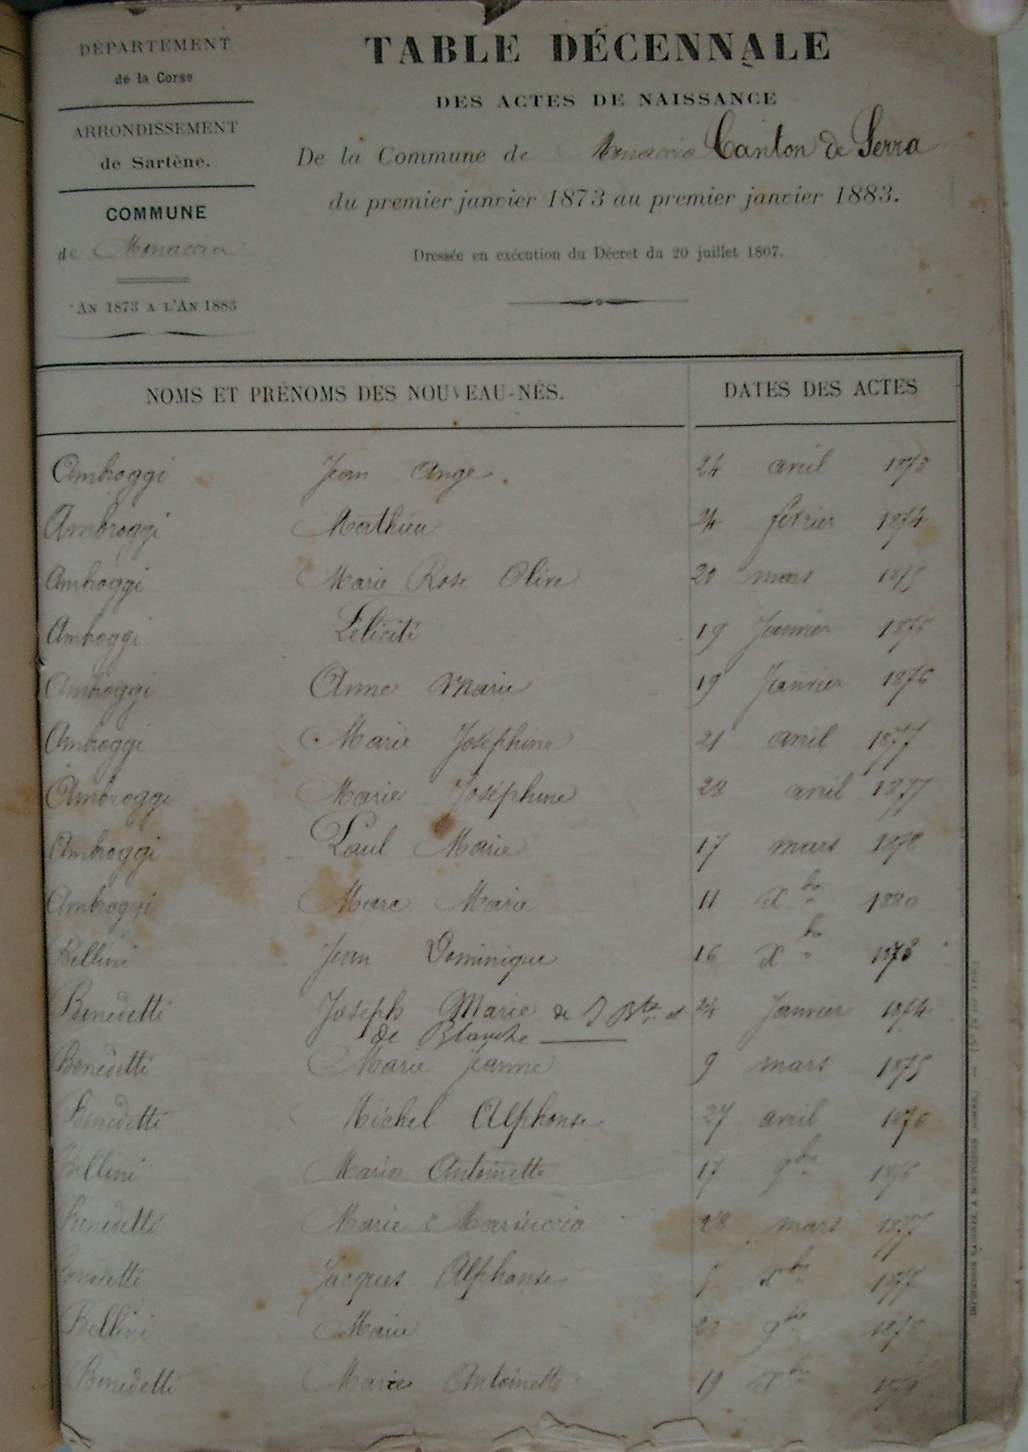 DÉPARTEMENT
de la Corse
ARRONDISSEMENT
de Sartène.
COMMUNE
de Monaccia
AN 1873 A L'AN 1883
TABLE DÉCENNALE
DES ACTES DE NAISSANCE
De la Commune de Monaccia Canton de Serra
du premier janvier 1873 au premier janvier 1883.
Dressée en exécution du Décret du 20 juillet 1807.
NOMS ET PRÉNOMS DES NOUVEAU-NÉS. DATES DES ACTES
Ambroggi Jean Ange. 24 avril 1873
Ambroggi Mathieu 24 février 1874
Ambroggi Marie Rose Olive 20 mars 1875
Ambroggi Félicité 19 Janvier 1876
Ambroggi Anne Marie 19 Janvier 1876
Ambroggi Marie Joséphine 21 avril 1877
Ambroggi Marie Joséphine 28 avril 1877
Ambroggi Paul Marie 17 mars 1878
Ambroggi Marc Marie 11 Xbre 1880
Bellini Jean Dominique 16 Xbre 1873
Benedetti Joseph Marie de J Bte et 24 Janvier 1874
de Blanche
Benedetti Marie Jeanne 9 mars 1875
Benedetti Michel Alphonse 27 avril 1876
Bellini Marie Antoinette 17 9bre 1876
Benedetti Marie 28 mars 1877
Benedetti Jacques Alphonse Xbre 1877
Bellini Marie 9bre
Benedetti Marie Antoinette 19 Xbre